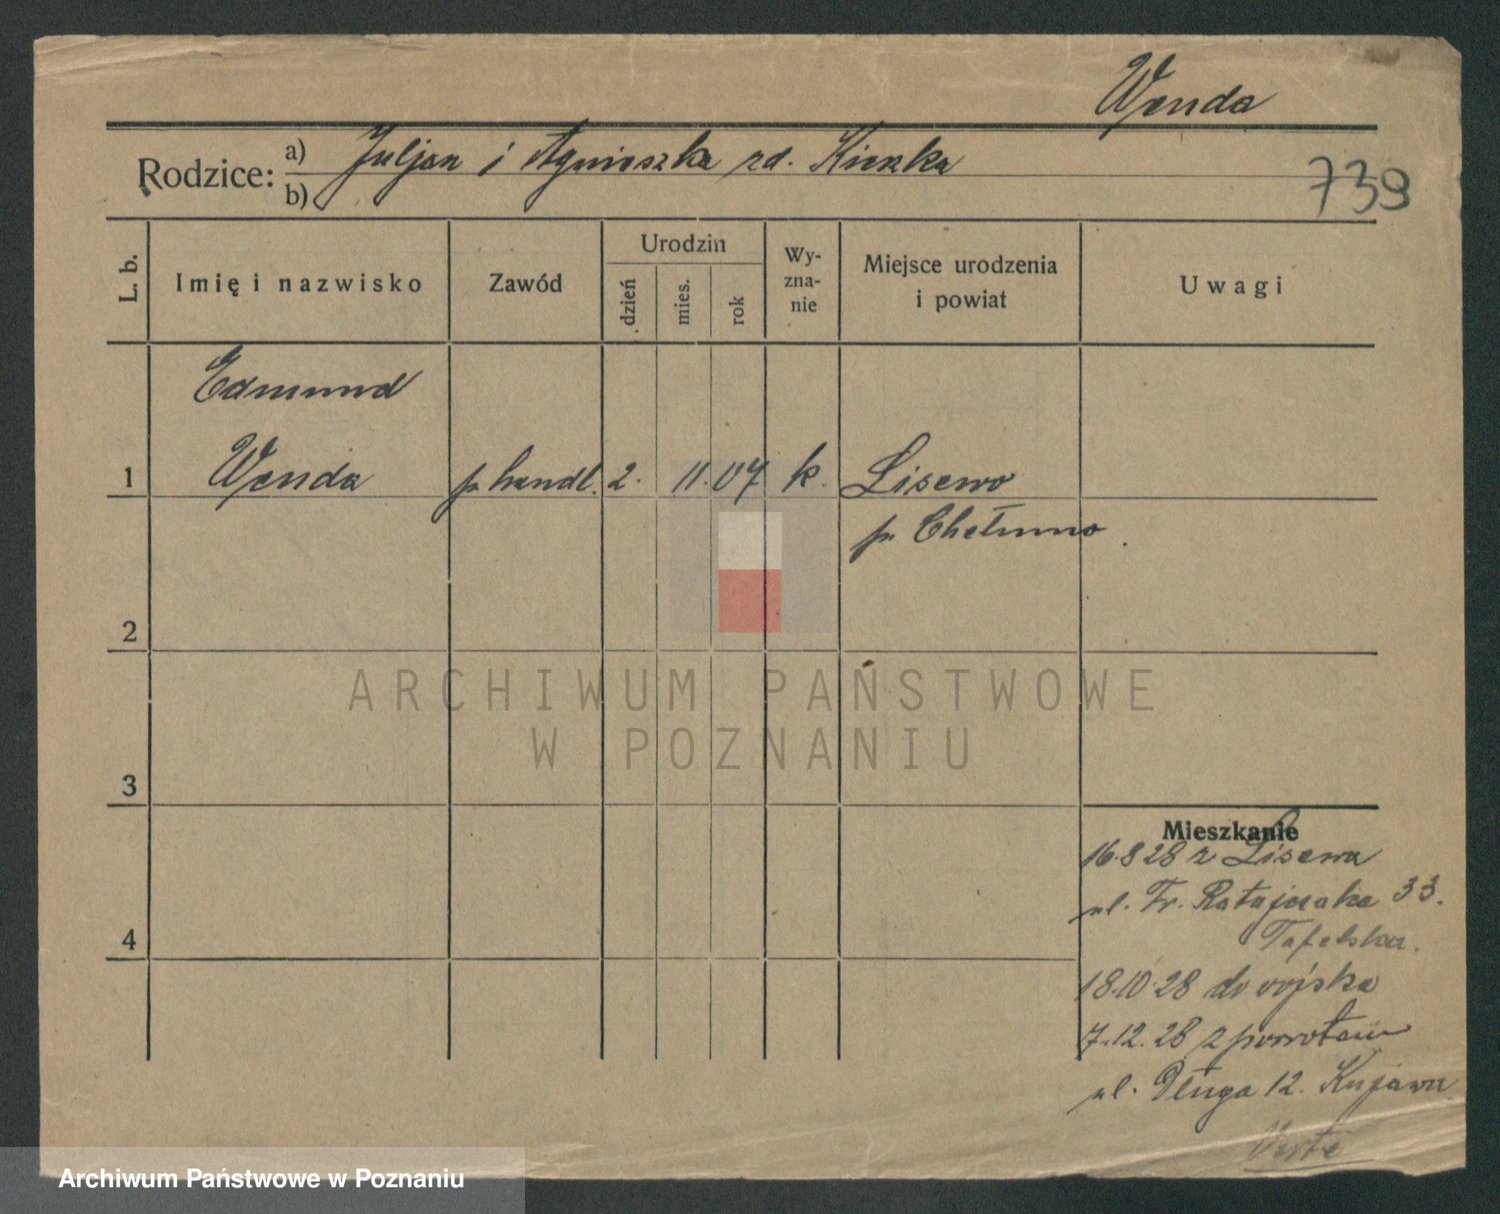 Wenda
Rodzice: a) Juljan i Agnieszka zd. Kienka
b)
739
L. b.
Imię i nazwisko
Zawód
Urodzin
dzień
mies.
rok
Wy-
zna-
nie
Miejsce urodzenia
i powiat
Uwagi
Edmund
1 Wenda p. handl. 2. 11. 07 k. Lisewo
p. Chełmno.
2
3
4
Mieszkanie
16.8 28 z Lisewa
ul. Fr. Ratajczaka 33.
18.10.28 do wojska
7.12.28 z powrotem
ul. Długa 12. Kujawa
Verte
ARCHIWUM PAŃSTWOWE
W POZNANIU
Archiwum Państwowe w Poznaniu